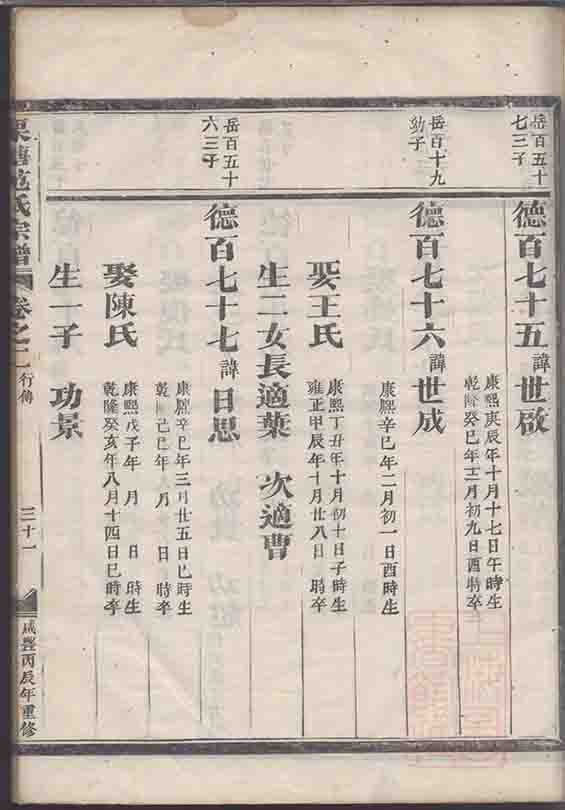 岳百五十
七三子
德百七十五 諱世啟
康熙庚辰年十月十七日午時生
乾隆癸巳年十二月初九日酉時卒
岳百十九
幼子
德百七十六 諱世成
康熙辛巳年二月初一日酉時生
娶王氏
康熙丁丑年十月初十日子時生
雍正甲辰年十月廿八日 時卒
生二女長適葉 次適曹
岳百五十
六三子
德百七十七 諱日思
康熙辛巳年三月廿五日巳時生
乾隆己巳年 月 日 時卒
娶陳氏
康熙戊子年 月 日 時生
乾隆癸亥年八月十四日巳時卒
生一子 功景
范氏宗譜 卷之二 行傳
三十一
咸豐丙辰年重修